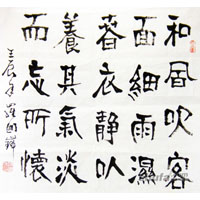 和風吹容
面細雨濕
著衣靜以
養其氣淡
而忘所懷
壬辰年羅